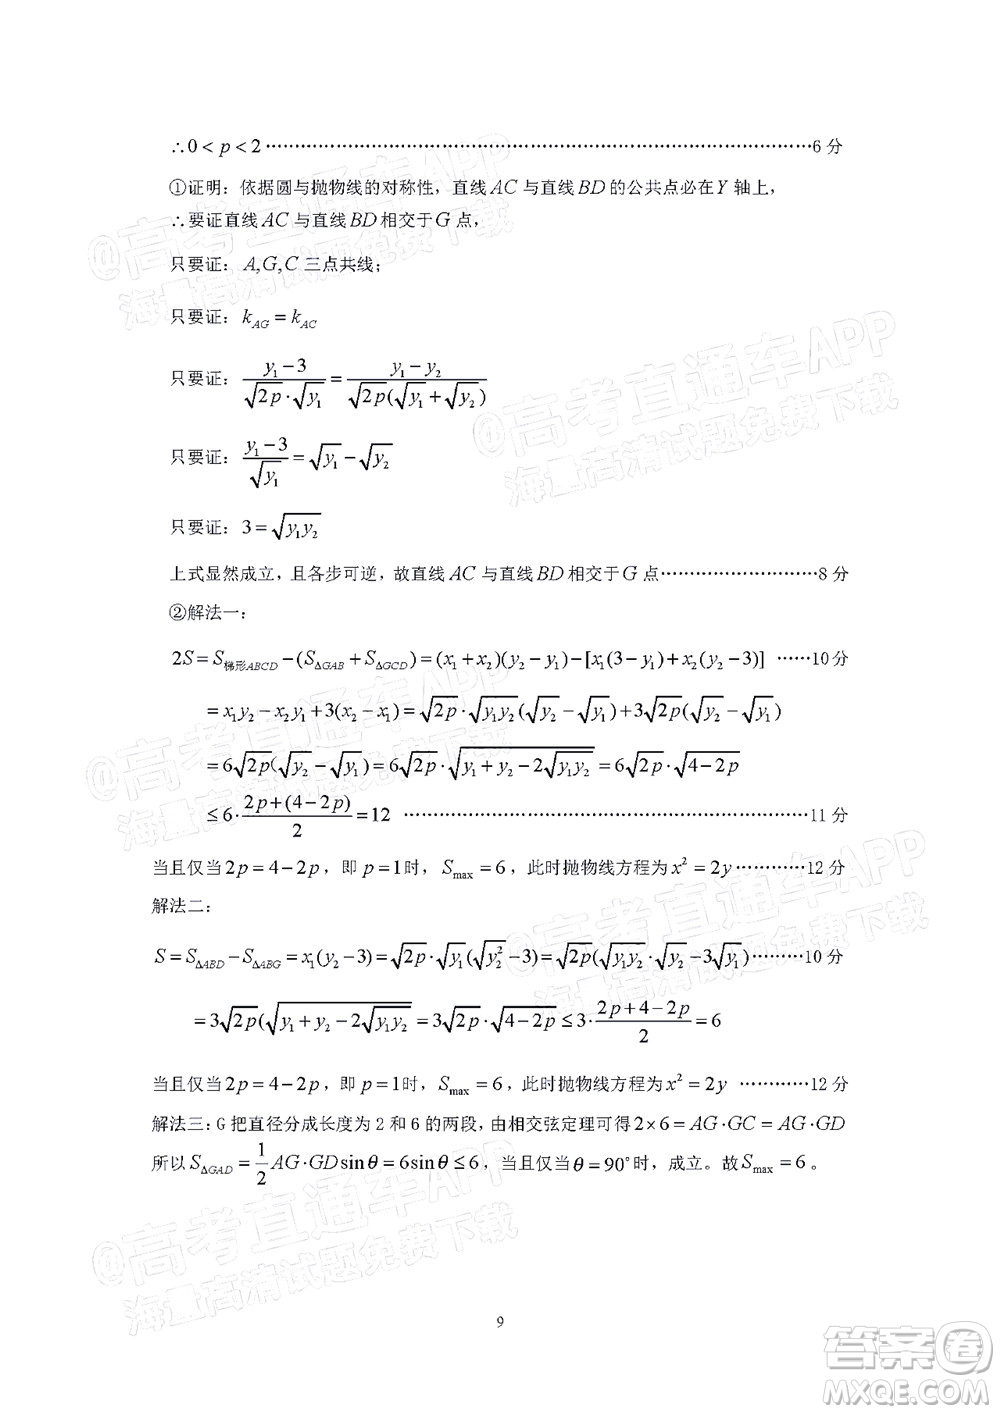 ∴0 < p < 2 ……………………………………………………………………6 分
①证明：依据圆与抛物线的对称性，直线 AC 与直线 BD 的公共点必在 Y 轴上，
∴要证直线 AC 与直线 BD 相交于 G 点，
只要证：A,G,C 三点共线；
只要证：k_{AG} = k_{AC}
只要证：\frac{y_1-3}{\sqrt{2p}·\sqrt{y_1}} = \frac{y_1-y_2}{\sqrt{2p}(\sqrt{y_1}+\sqrt{y_2})}
只要证：\frac{y_1-3}{\sqrt{y_1}} = \sqrt{y_1}-\sqrt{y_2}
只要证：3 = \sqrt{y_1y_2}
上式显然成立，且各步可逆，故直线 AC 与直线 BD 相交于 G 点………………………8 分
②解法一：
2S = S_{梯形ABCD} − (S_{ΔGAB} + S_{ΔGCD}) = (x_1 + x_2)(y_2 − y_1) − [x_1(3 − y_1) + x_2(y_2 − 3)] ……10 分
= x_1y_2 − x_2y_1 + 3(x_2 − x_1) = \sqrt{2p}·\sqrt{y_1y_2}(\sqrt{y_2} − \sqrt{y_1}) + 3\sqrt{2p}(\sqrt{y_2} − \sqrt{y_1})
= 6\sqrt{2p}(\sqrt{y_2} − \sqrt{y_1}) = 6\sqrt{2p}·\sqrt{y_1 + y_2 − 2\sqrt{y_1y_2}} = 6\sqrt{2p}·\sqrt{4 − 2p}
≤ 6·\frac{2p + (4 − 2p)}{2} = 12 ……………………………………………………………11 分
当且仅当 2p = 4 − 2p，即 p = 1 时，S_{max} = 6，此时抛物线方程为 x^2 = 2y …………12 分
解法二：
S = S_{ΔABD} − S_{ΔABG} = x_1(y_2 − 3) = \sqrt{2p}·\sqrt{y_1}(\sqrt{y_2^2} − 3) = \sqrt{2p}(\sqrt{y_1y_2}·\sqrt{y_2} − 3\sqrt{y_1}) ………10 分
= 3\sqrt{2p}(\sqrt{y_1 + y_2 − 2\sqrt{y_1y_2}} = 3\sqrt{2p}·\sqrt{4 − 2p} ≤ 3·\frac{2p + 4 − 2p}{2} = 6
当且仅当 2p = 4 − 2p，即 p = 1 时，S_{max} = 6，此时抛物线方程为 x^2 = 2y …………12 分
解法三：G 把直径分成长度为 2 和 6 的两段，由相交弦定理可得 2×6 = AG·GC = AG·GD
所以 S_{ΔGAD} = \frac{1}{2}AG·GD sinθ = 6sinθ ≤ 6，当且仅当 θ = 90°时，成立。故 S_{max} = 6 。
9
@高考直通车APP
海量高清试题免费下载
@高考直通车APP
海量高清试题免费下载
@高考直通车APP
海量高清试题免费下载
@高考直通车APP
海量高清试题免费下载
@高考直通车APP
海量高清试题免费下载
答案圈
MXQE.COM